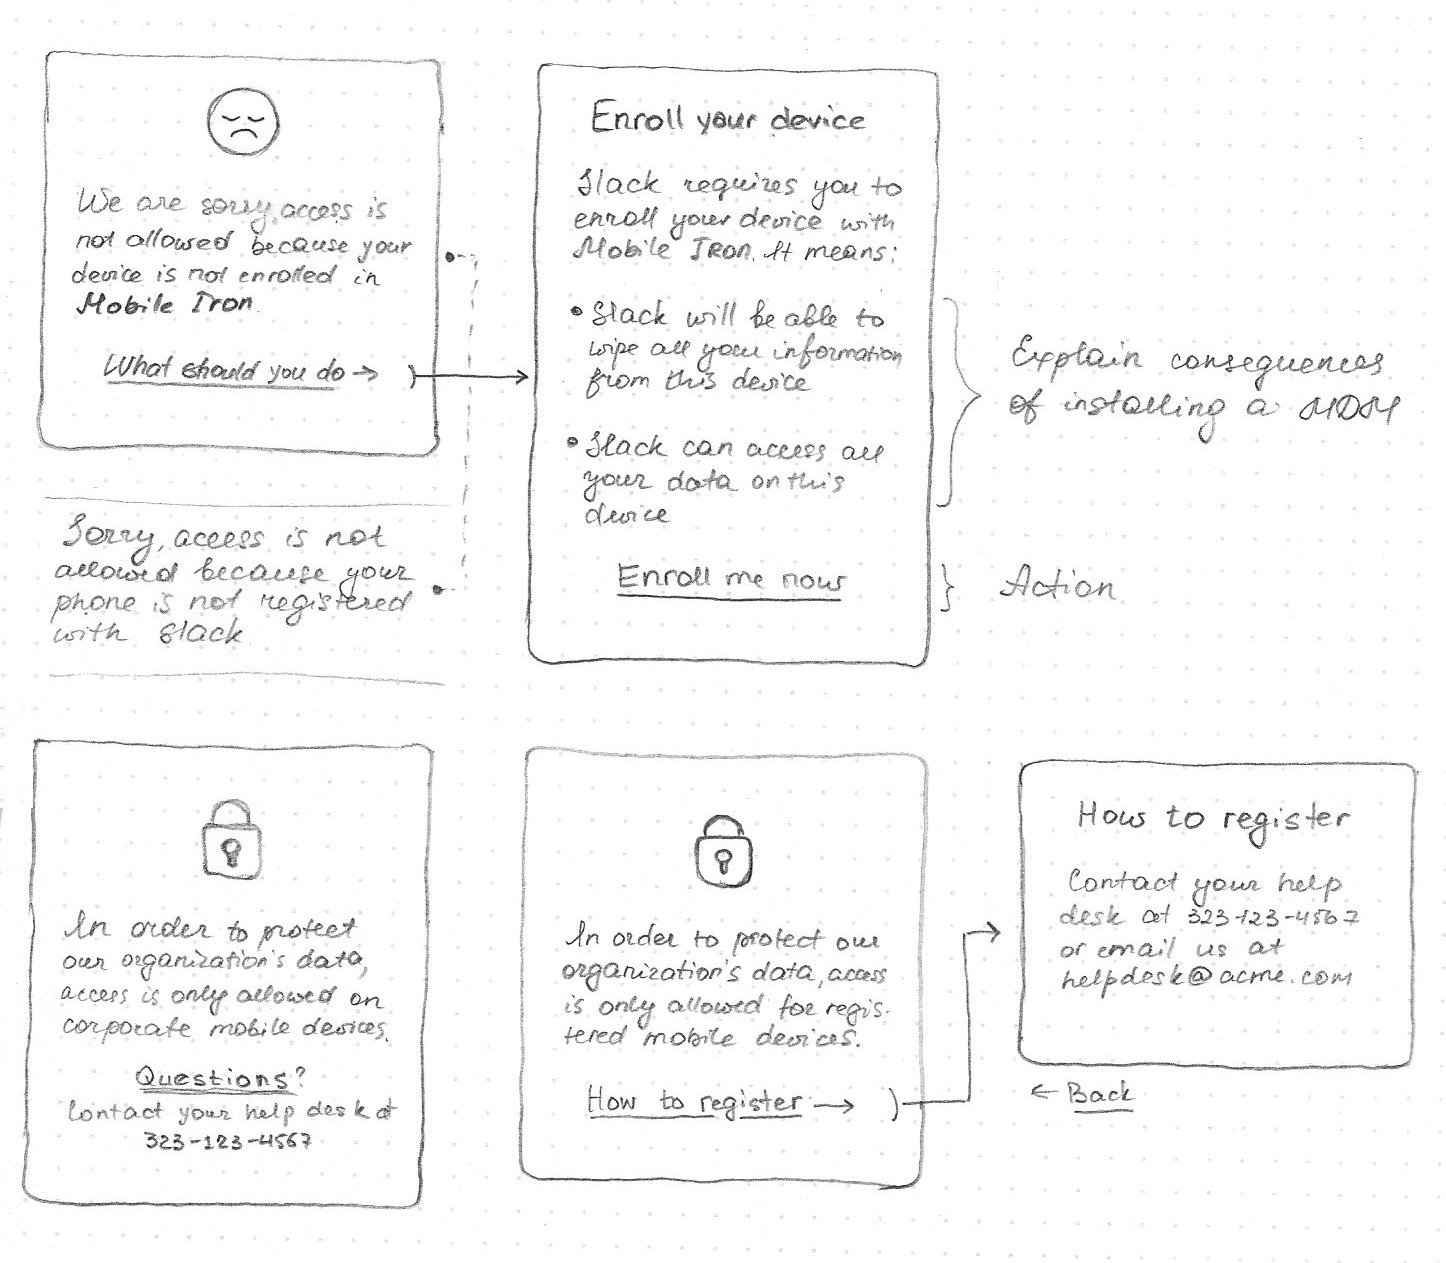 We are sorry, access is
not allowed because your
device is not enrolled in
Mobile Iron.
What should you do →
Enroll your device
Slack requires you to
enroll your device with
Mobile Iron. It means:
• Slack will be able to
wipe all your information
from this device
• Slack can access all
your data on this
device
Enroll me now
Explain consequences
of installing a MDM
Action
Sorry, access is not
allowed because your
phone is not registered
with Slack
In order to protect
our organization's data,
access is only allowed on
corporate mobile devices.
Questions?
Contact your help desk at
323-123-4567
In order to protect our
organization's data, access
is only allowed for regis-
tered mobile devices.
How to register →
How to register
Contact your help
desk at 323-123-4567
or email us at
helpdesk@acme.com
← Back